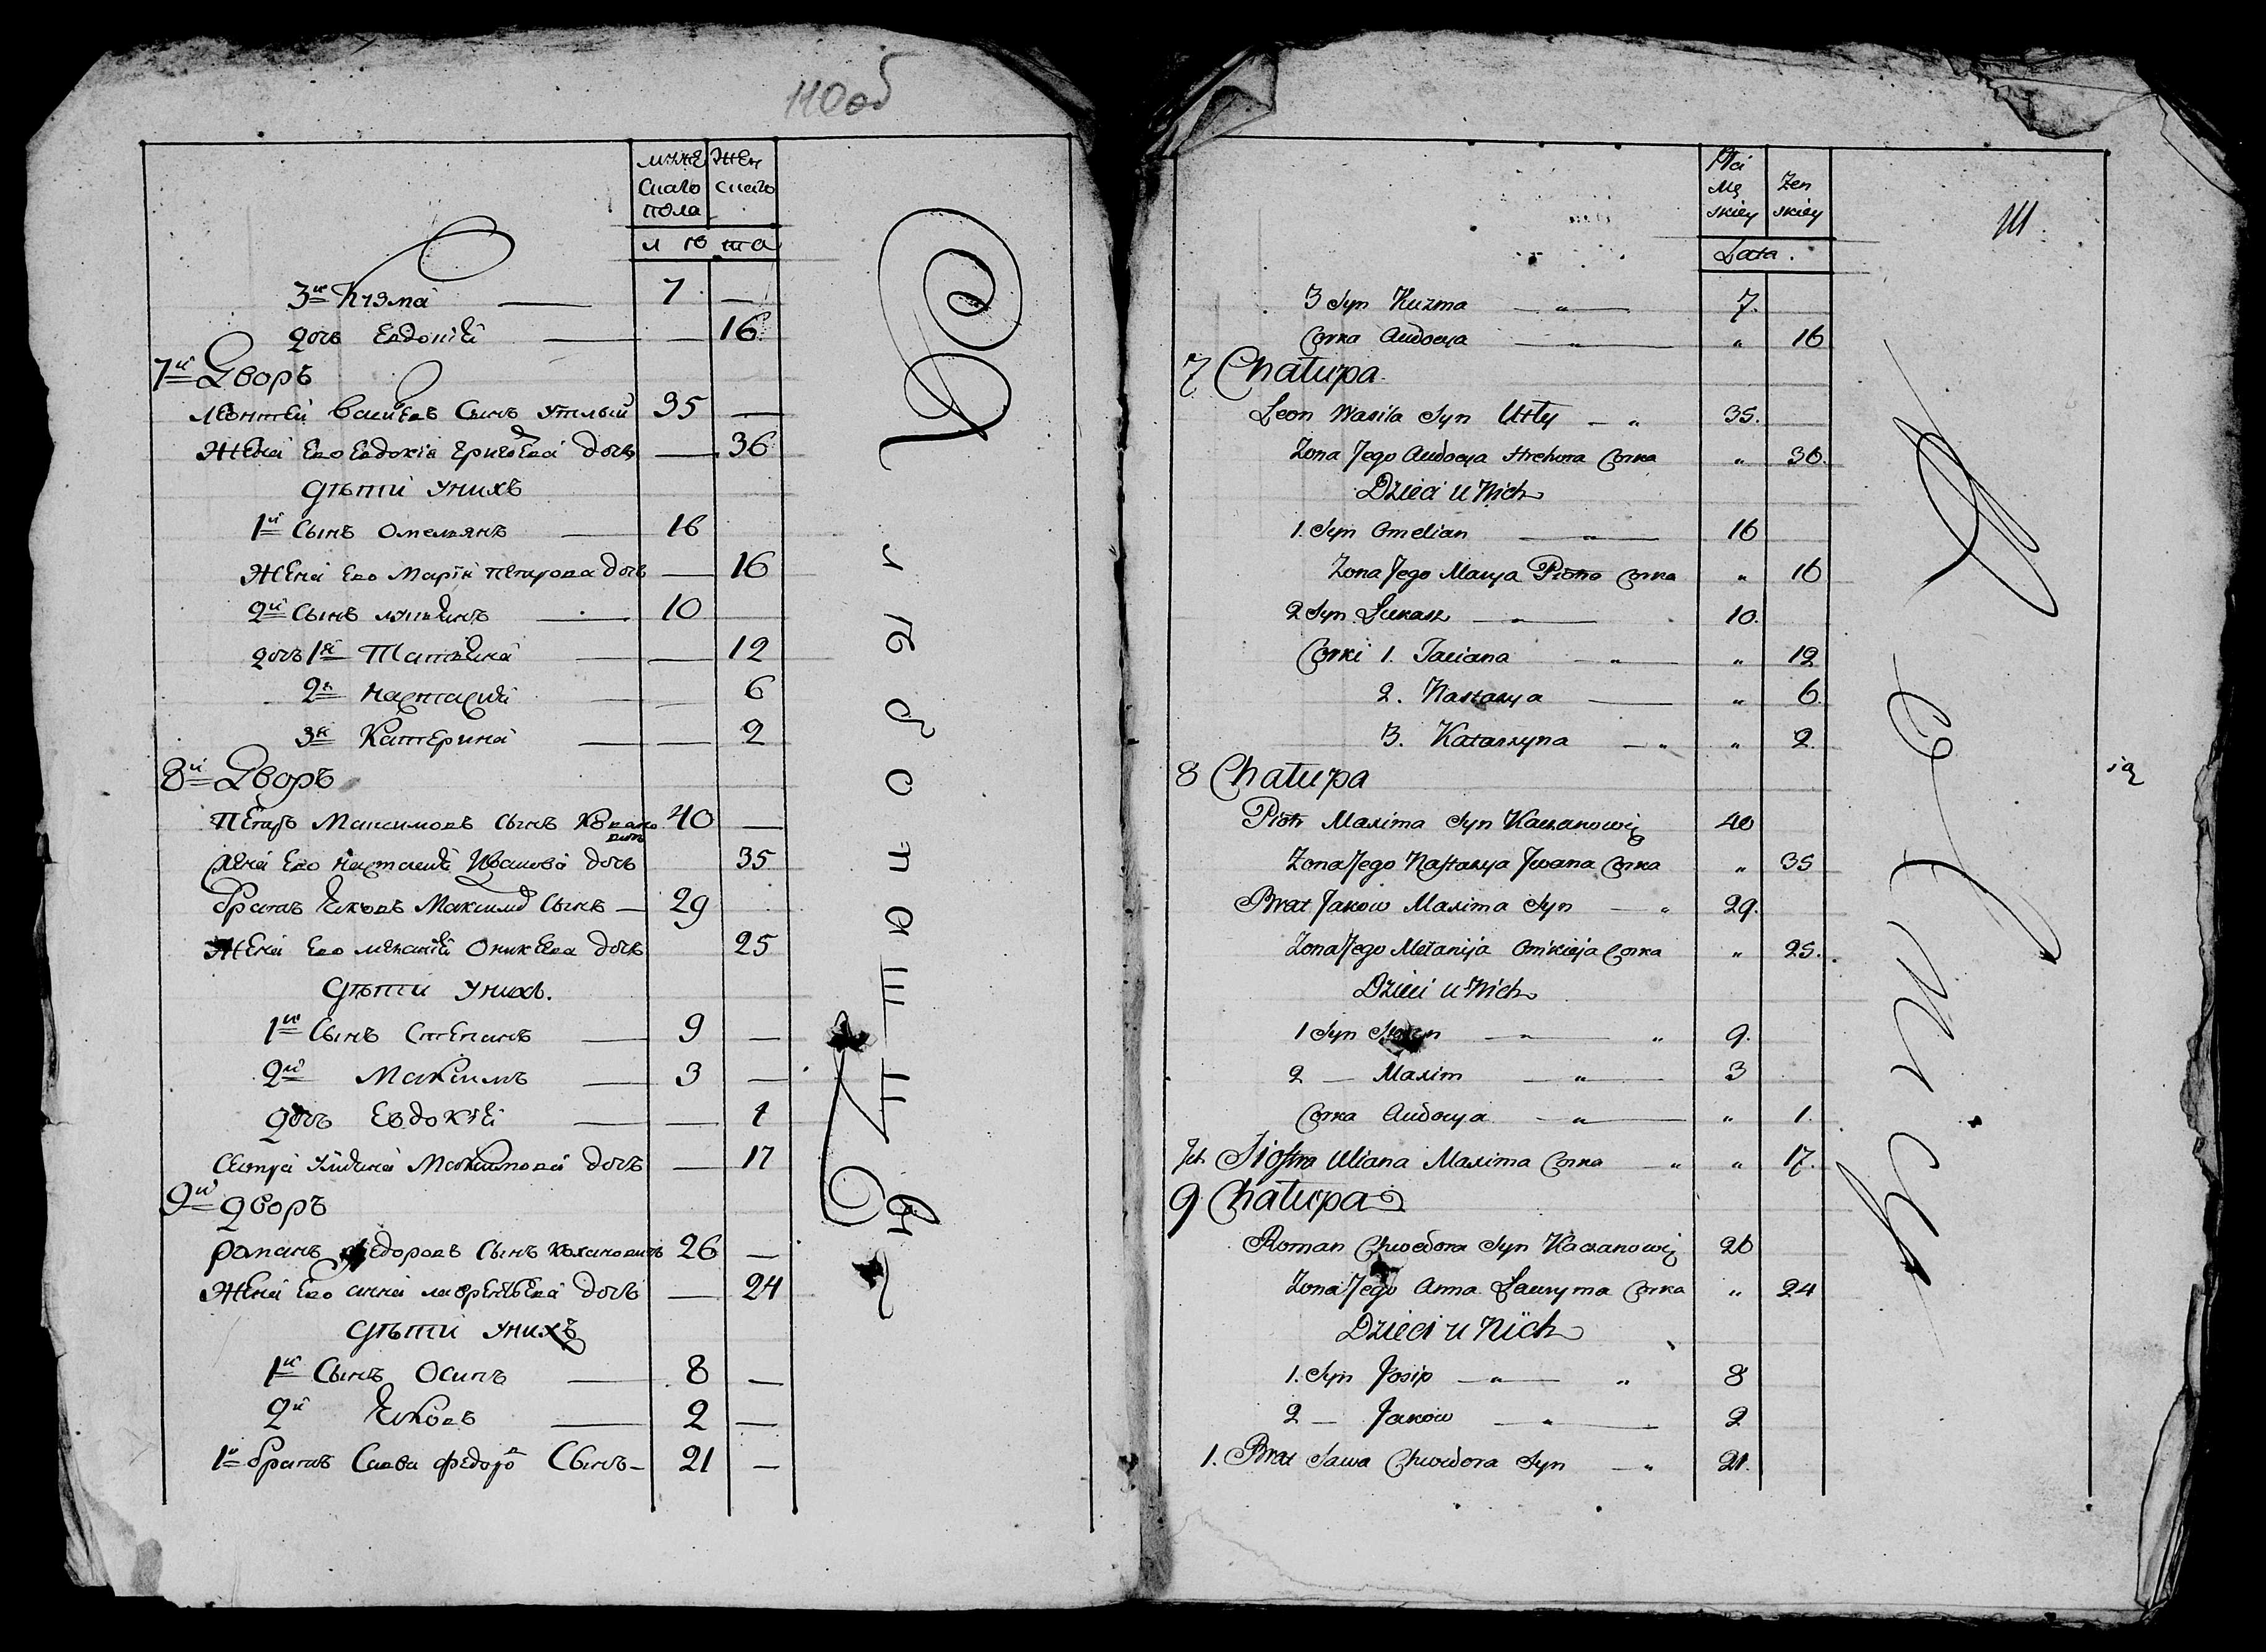 110об
муже
скаго
пола
жен
скаго
лѣта
3й Кузма — 7 —
дочь Евдокія — — 16
7й Дворъ
Леонтей Василевъ Сынъ Утлый 35 —
Жена Ево Евдокія Григорева дочь — 36
Дѣти Унихъ
1й Сынъ Омельянъ — 16
Жена Ево Марія Петрова дочь — 16
2й Сынъ — 10
дочь 1я Татьяна — — 12
2я Настасия — 6
3я Катерина — — 2
8й Дворъ
Пётръ Максимовъ Сынъ 40 —
Жена Ево Настасия Иванова дочь 35
братъ Яковъ Максимов Сынъ — 29
Жена Ево Меланія Оникѣева дочь 25
Дѣти Унихъ.
1й Сынъ Степанъ — 9 —
2й Максимъ — 3 —
дочь Евдокѣя — — 1
Сестра Ульяна Максимова дочь — 17
9й Дворъ
Романъ Федоровъ Сынъ Кохановичъ 26 —
Жена Ево Анна Лаврентьева дочь — 24
Дѣти Унихъ
1й Сынъ Осипъ — 8 —
2й Яковъ — 2 —
1й братъ Сава Федоро в Сынъ — 21 —
111
Płci
Mę
skiey
Żen
skiey
Lata.
3 Syn Kuzma — " — 7.
Corka Audocya — " — " 16
7 Chałupa
Leon Wasila Syn Utły — " 35.
Zona Jego Audocya Hrehora Corka " 36.
Dzieci u Nich
1. Syn Omelian — " — 16
Zona Jego Marya Piotra Corka " 16
2 Syn Łukasz — " — 10.
Corki 1. Taciana — " — " 12
2. Nastazya — " 6.
3. Katarzyna — " " 2.
8 Chałupa
Piotr Maxima Syn Kachanowicz 40
Zona Jego Nastazya Jwana Corka " 35
Brat Jakow Maxima Syn — " 29.
Zona Jego Mełanija Onikieja Corka " 25.
Dzieci u Nich
1 Syn — " — " 9.
2 — Maxim — " — 3
Corka Audocya — " — " 1.
Ich Siostra Uliana Maxima Corka — " " 17.
9 Chałupa
Roman Chwedora Syn Kachanowicz 26
Zona Jego Anna Ławryna Corka " 24
Dzieci u Nich
1. Syn Josip — " — " 8
2 — Jakow — " — 2
1. Brat Sawa Chwedora Syn — " 21.